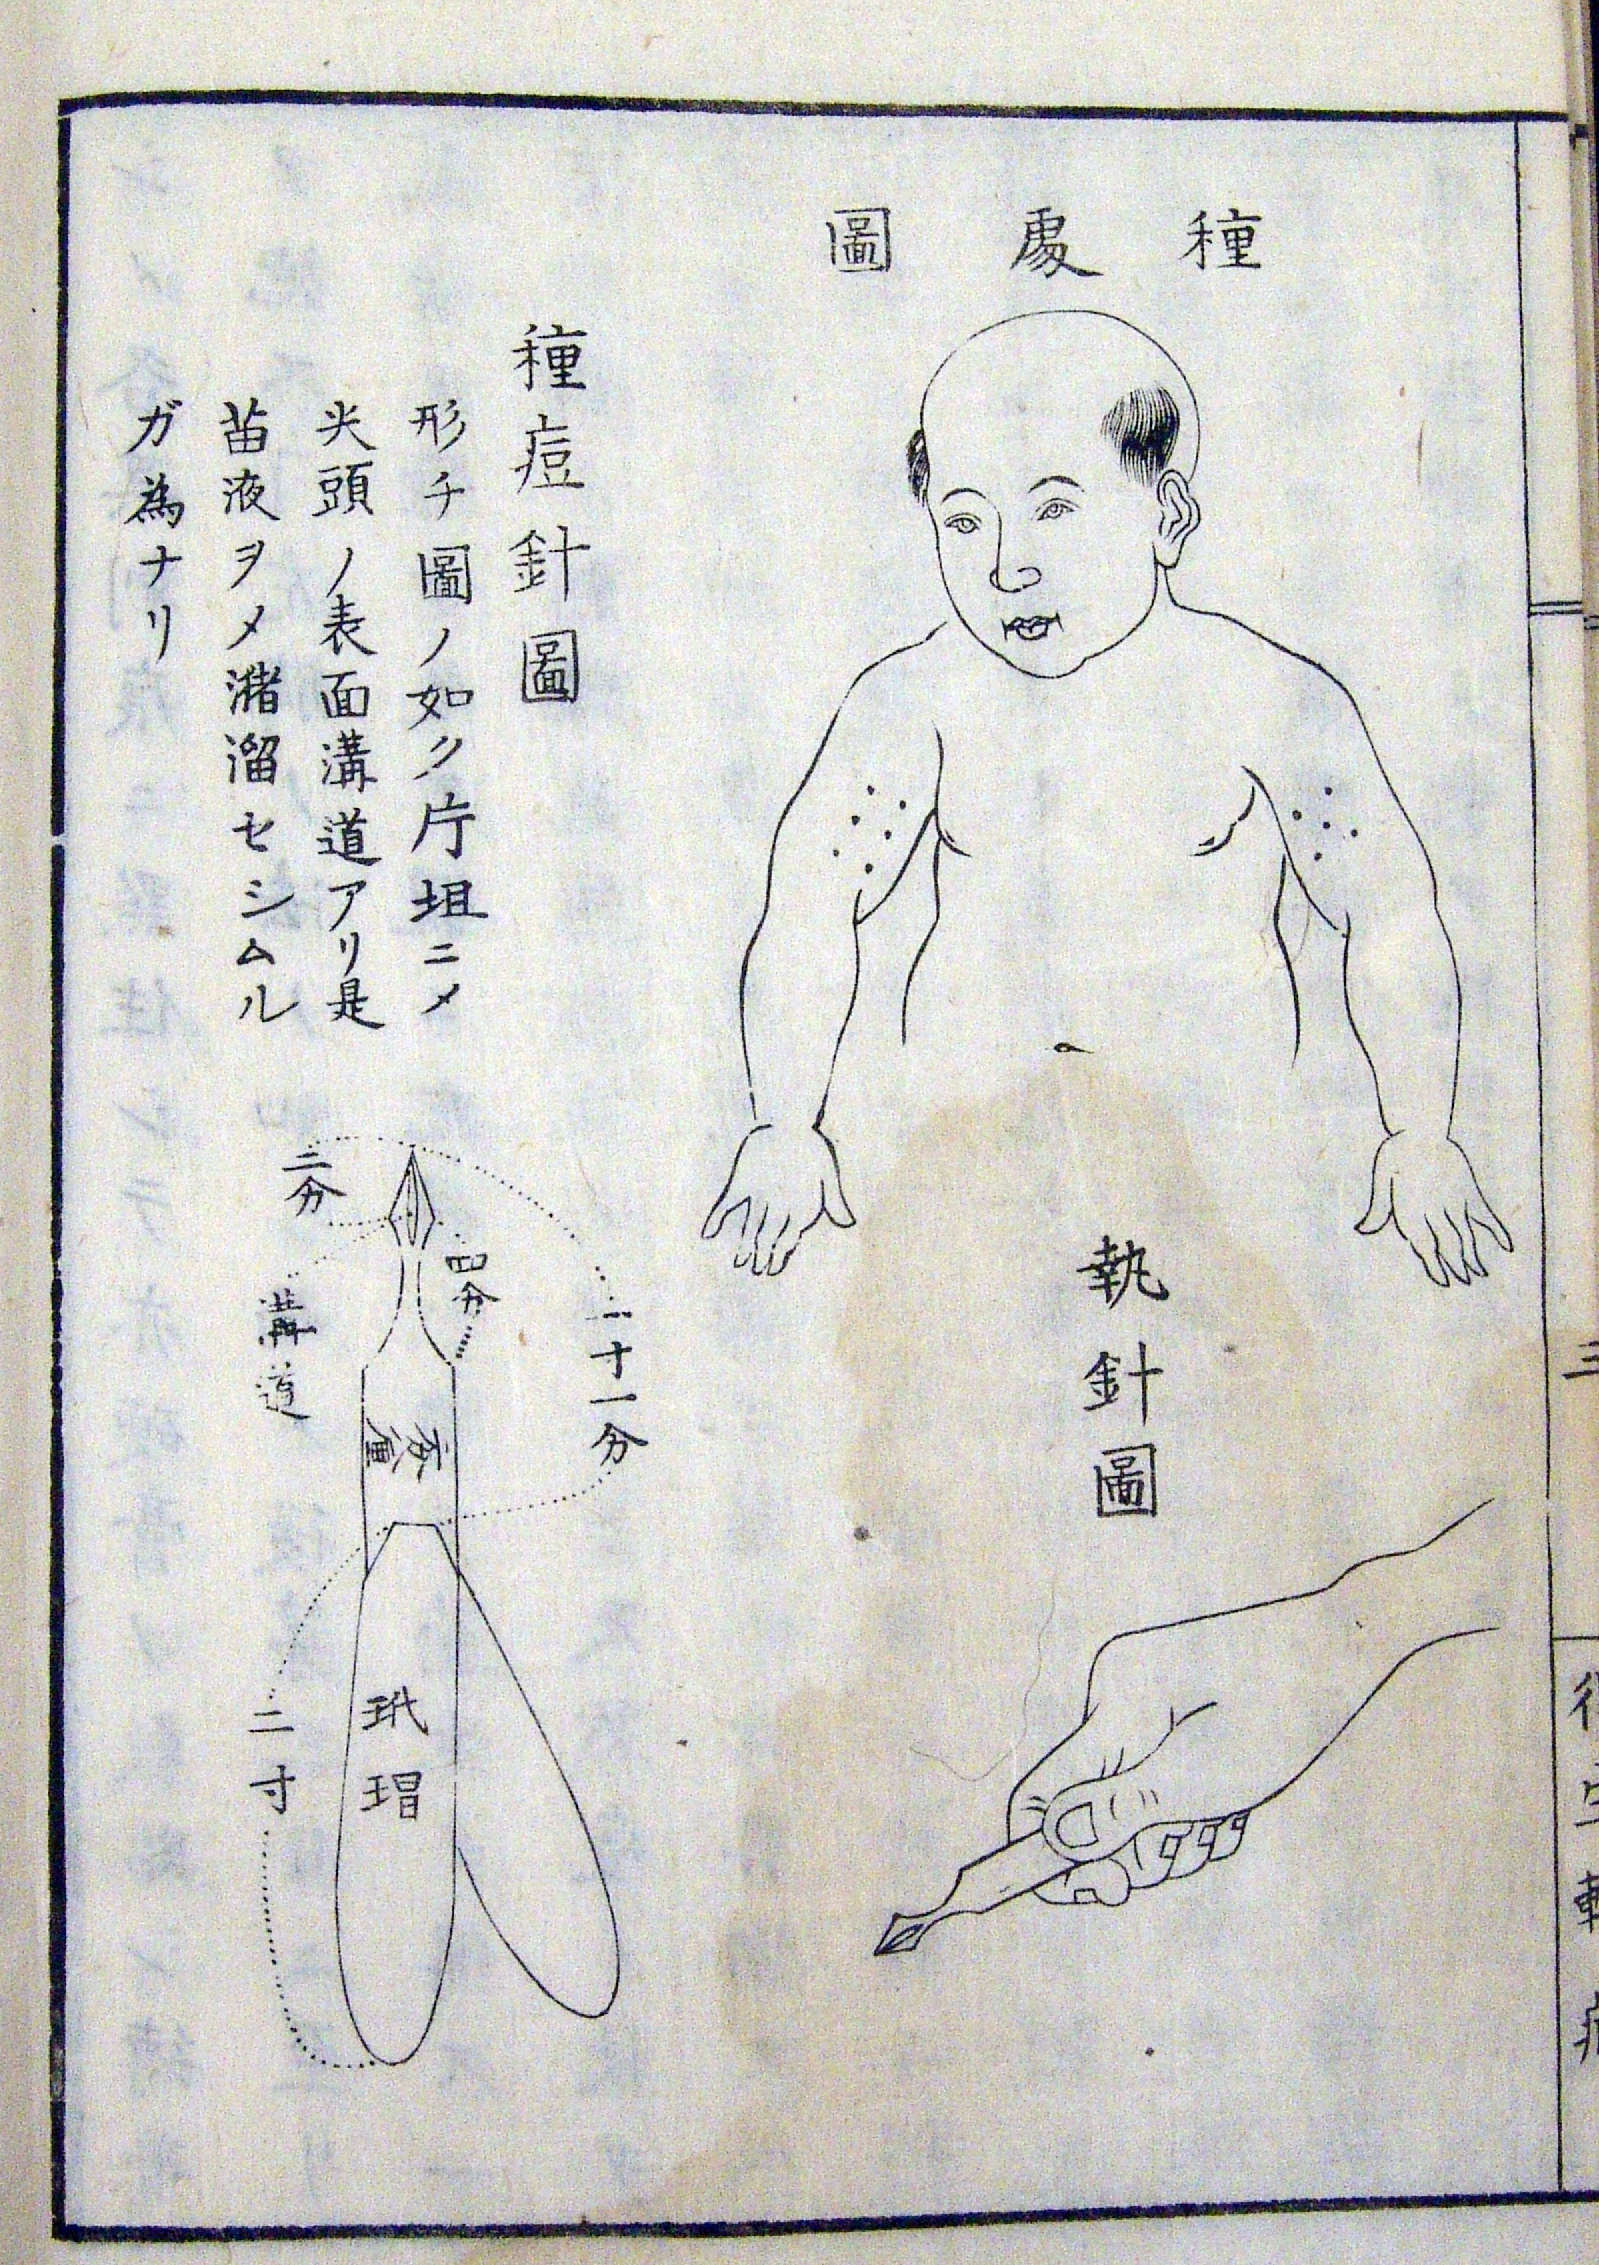 種處圖
執針圖
種痘針圖
形チ圖ノ如ク片坦ニメ
尖頭ノ表面溝道アリ是
苗液ヲメ瀦溜セシムル
ガ為ナリ
一寸一分
四分
二分
溝道
玳瑁
二寸
三